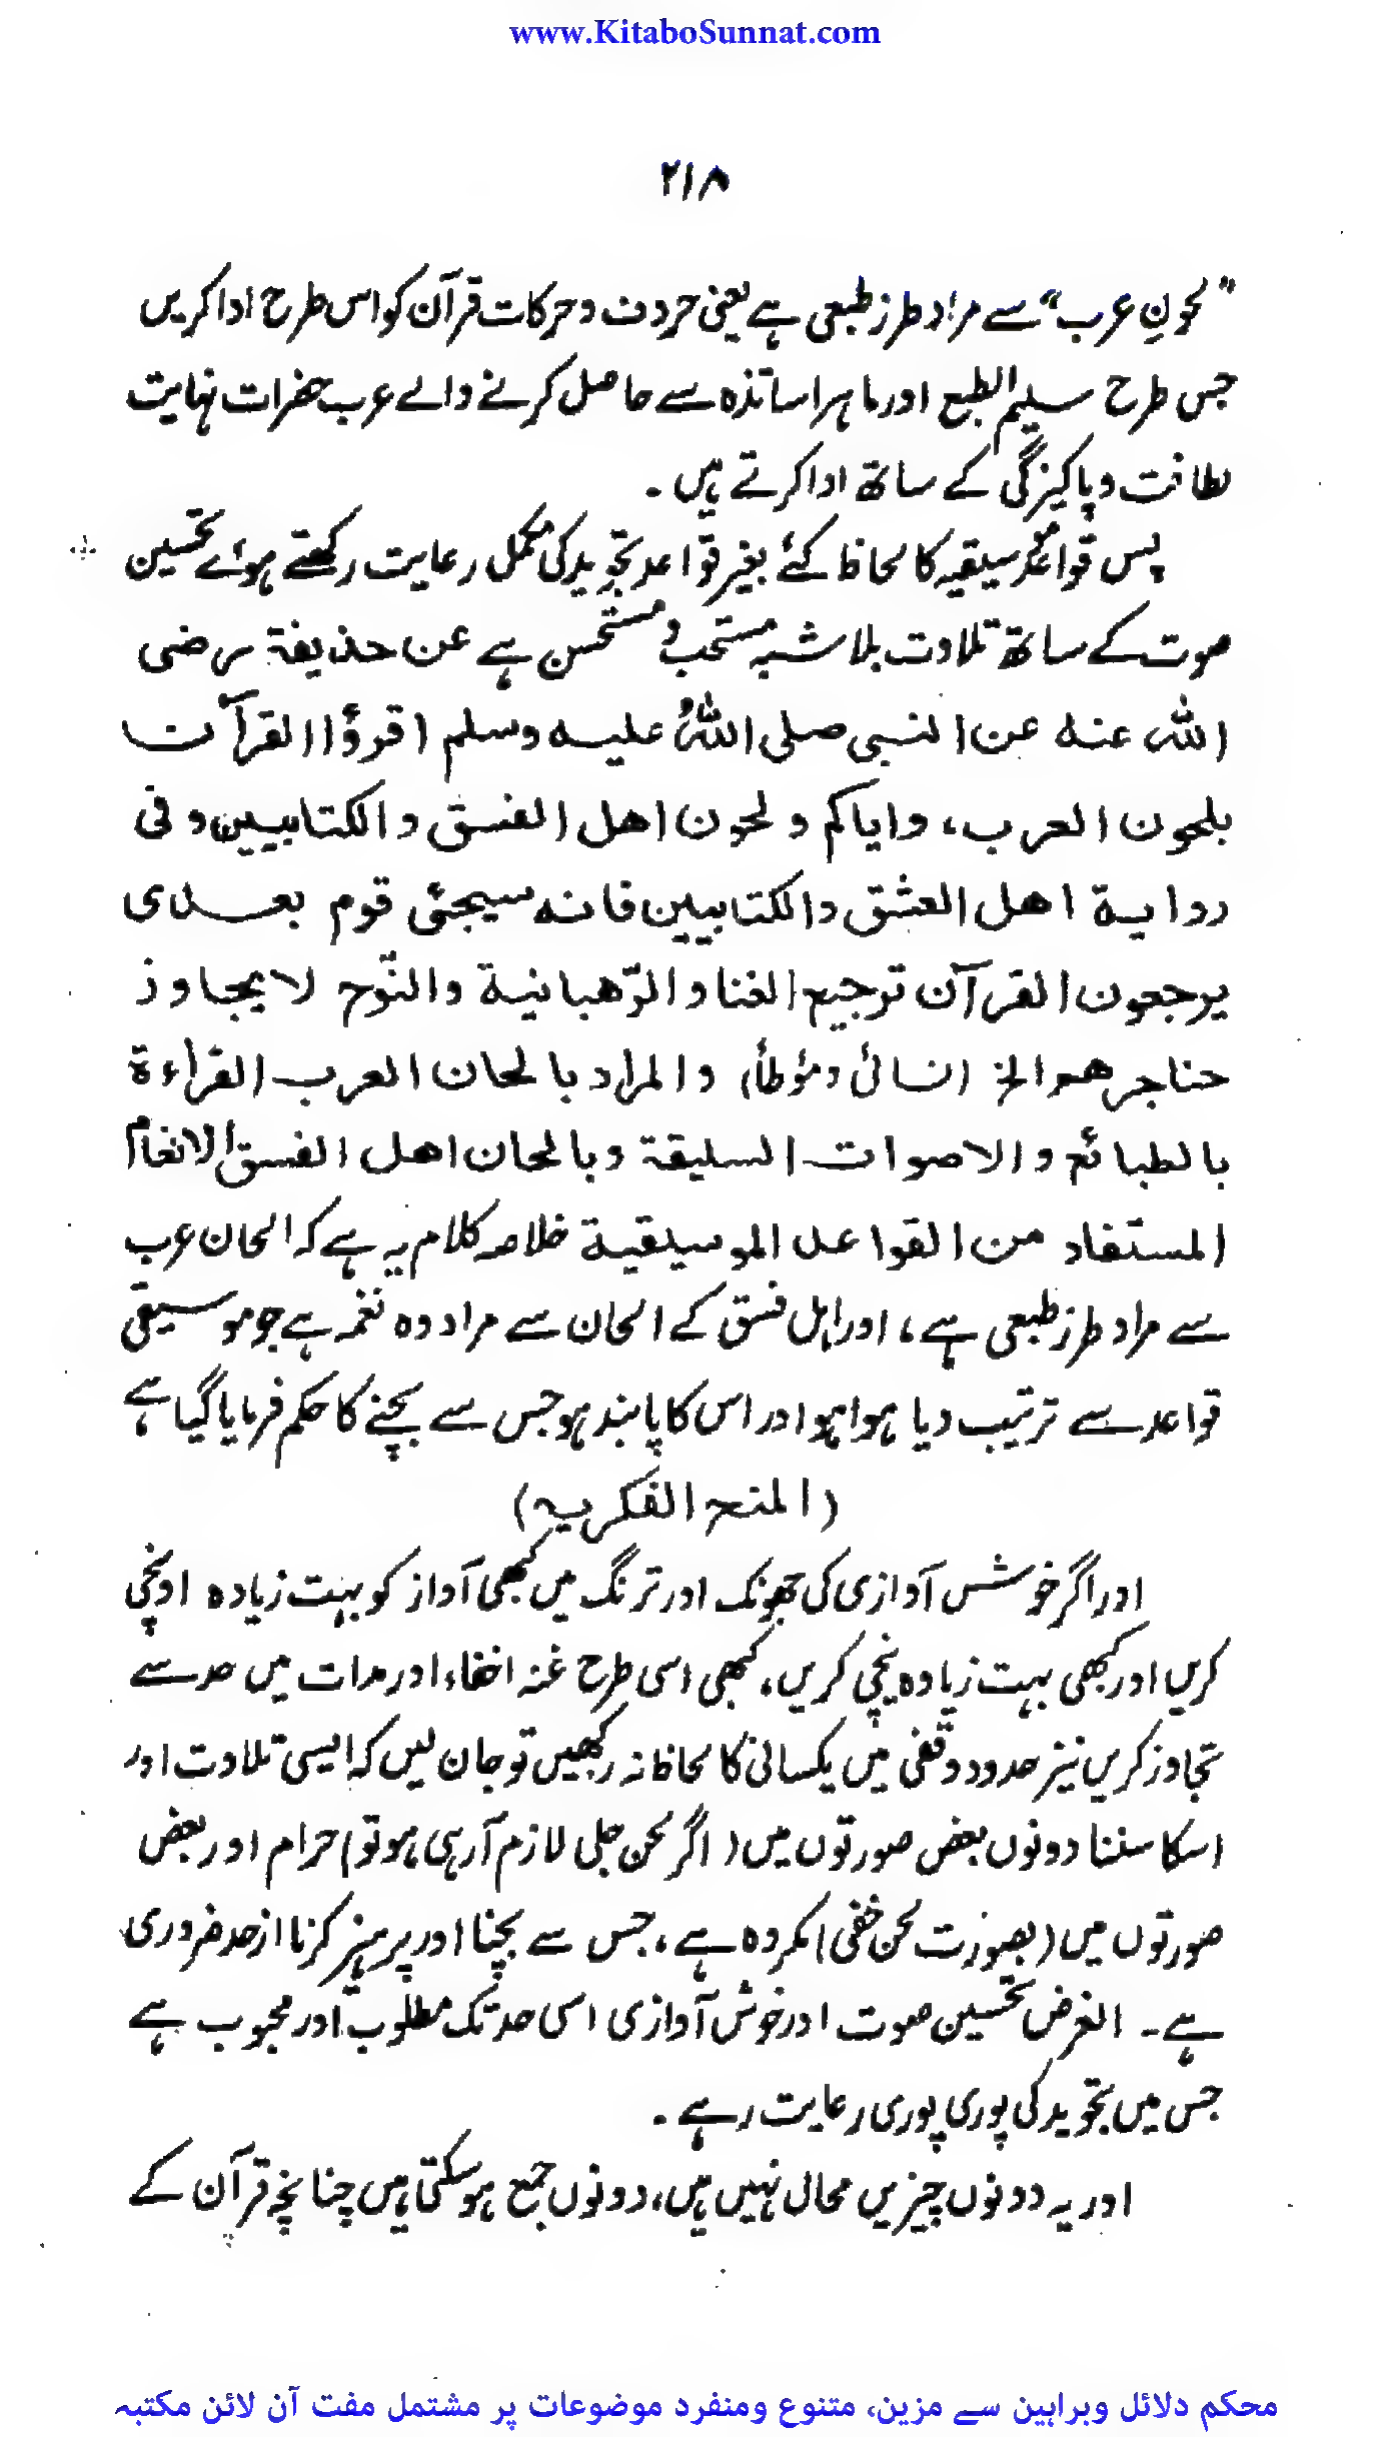 www.KitaboSunnat.com
۲۱۸
”لحونِ عرب“ سے مراد طرز طبعی ہے یعنی حروف و حرکات قرآن کو اس طرح ادا کریں
جس طرح سلیم الطبع اور ماہر اساتذہ سے حاصل کرنے والے عرب حضرات نہایت
لطافت و پاکیزگی کے ساتھ ادا کرتے ہیں ۔
پس قواعد موسیقیہ کا لحاظ کئے بغیر قواعد تجوید کی مکمل رعایت رکھتے ہوئے تحسین
صوت کے ساتھ تلاوت بلاشبہ مستحب و مستحسن ہے عن حذیفۃ رضی
اللہ عنہ عن النبی صلی اللہُ علیہ وسلم اقرؤا القرآن
بلحون العرب، وایاکم ولحون اھل الفسق والکتابیین وفی
روایۃ اھل العشق والکتابیین فانہ سیجئی قوم بعدی
یرجعون القرآن ترجیع الغنا والرّھبانیۃ والنّوح لا یجاوز
حناجرھم الخ (نسائی ومؤطأ) والمراد بالحان العرب القراءۃ
بالطبائع والاصوات السلیقۃ وبالحان اھل الفسق الانغام
المستفاد من القواعد الموسیقیۃ خلاصہ کلام یہ ہے کہ الحان عرب
سے مراد طرز طبعی ہے، اور اہل فسق کے الحان سے مراد وہ نغمہ ہے جو موسیقی
قواعد سے ترتیب دیا ہوا ہو اور اس کا پابند ہو جس سے بچنے کا حکم فرمایا گیا ہے
(المنح الفکریہ)
اور اگر خوش آوازی کی جھونک اور ترنگ میں کبھی آواز کو بہت زیادہ اونچی
کریں اور کبھی بہت زیادہ نیچی کریں، کبھی اسی طرح غنہ اخفاء اور مدات میں حد سے
تجاوز کریں نیز حدود وقفی میں یکسانی کا لحاظ نہ رکھیں تو جان لیں کہ ایسی تلاوت اور
اسکا سننا دونوں بعض صورتوں میں (اگر لحن جلی لازم آرہی ہو تو) حرام اور بعض
صورتوں میں (بصورت لحن خفی) مکروہ ہے، جس سے بچنا اور پرہیز کرنا از حد ضروری
ہے۔ الغرض تحسین صوت اور خوش آوازی اسی حد تک مطلوب اور محبوب ہے
جس میں تجوید کی پوری پوری رعایت رہے ۔
اور یہ دونوں چیزیں محال نہیں ہیں، دونوں جمع ہوسکتی ہیں چنانچہ قرآن کے
محکم دلائل وبراہین سے مزین، متنوع ومنفرد موضوعات پر مشتمل مفت آن لائن مکتبہ